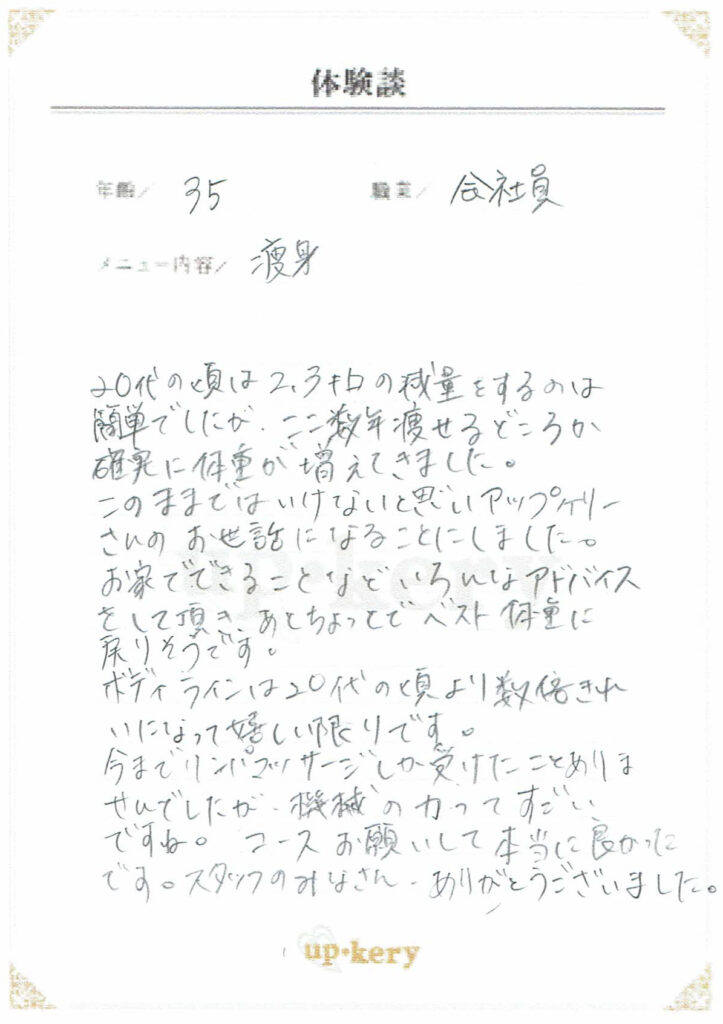 体験談
年齢／ 35 職業／ 会社員
メニュー内容／ 痩身
20代の頃は2,3キロの減量をするのは
簡単でしたが、ここ数年痩せるどころか
確実に体重が増えてきました。
このままではいけないと思いアップケリー
さんのお世話になることにしました。
お家でできることなどいろんなアドバイス
をして頂き、あとちょっとでベスト体重に
戻りそうです。
ボディラインは20代の頃より数倍きれ
いになって嬉しい限りです。
今までリンパマッサージしか受けたことありま
せんでしたが、機械の力ってすごい
ですね。コースお願いして本当に良かった
です。スタッフのみなさん、ありがとうございました。
up・kery